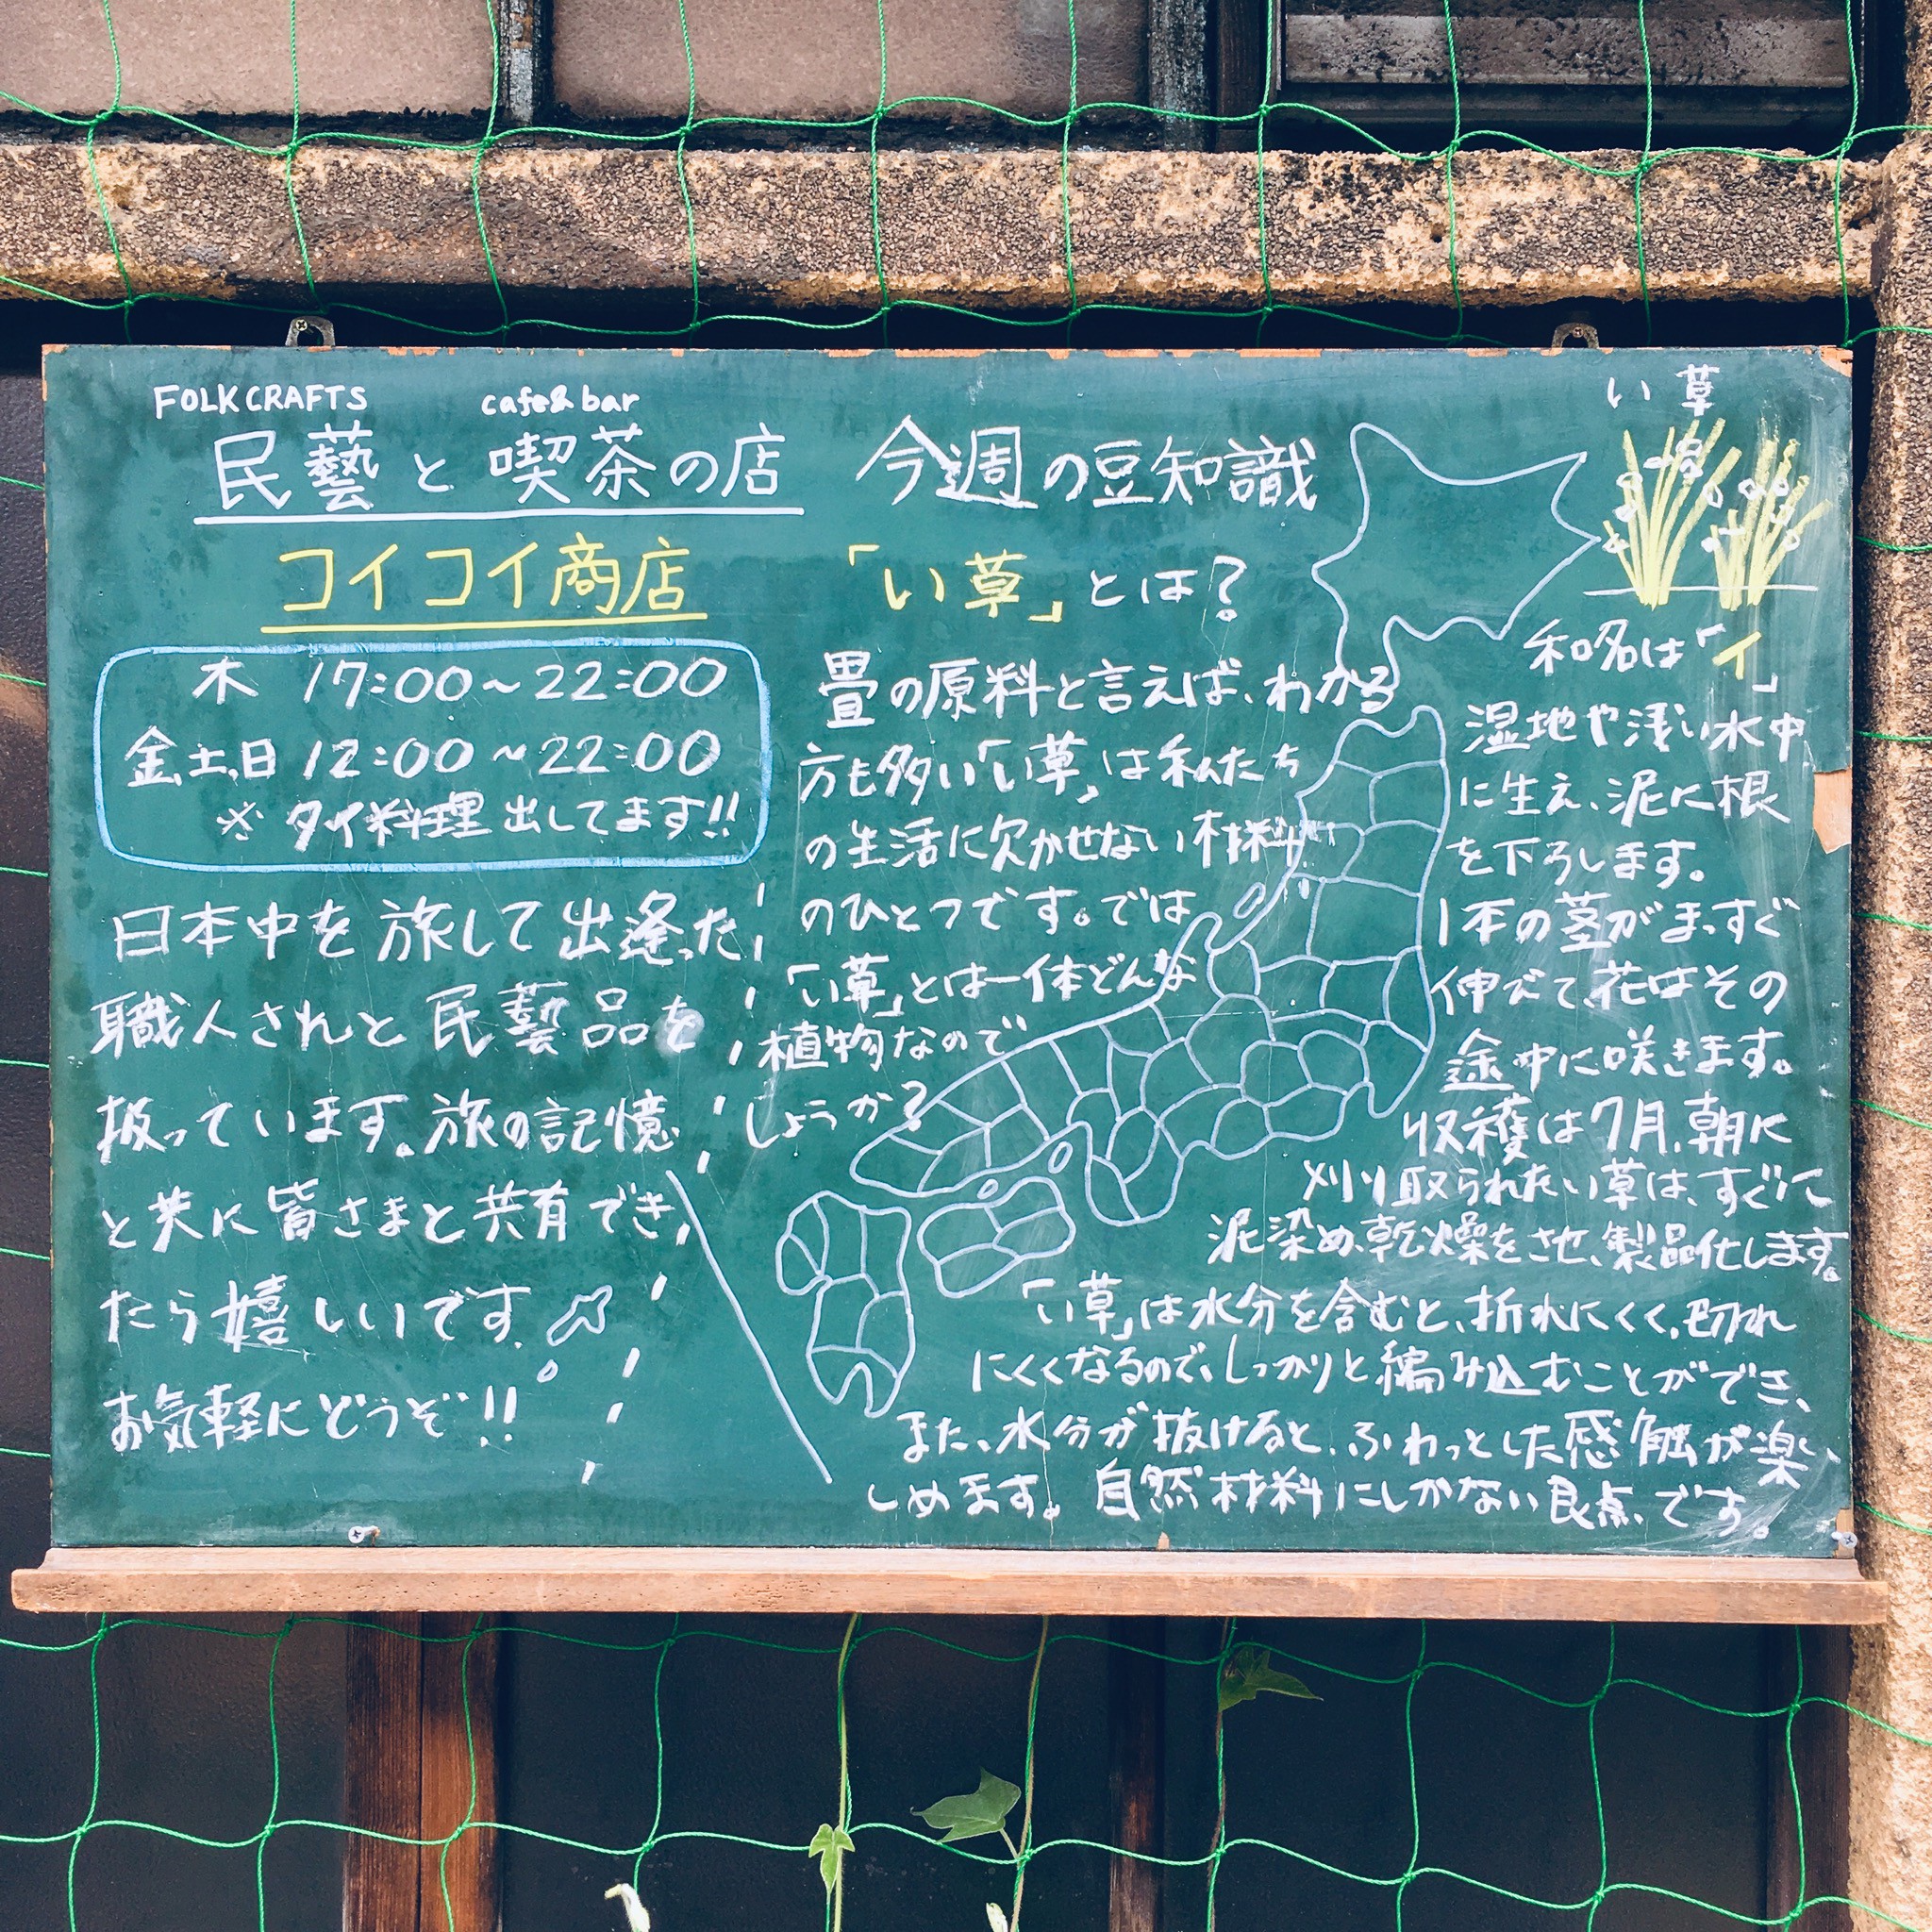 FOLKCRAFTS cafe&bar
民藝と喫茶の店
コイコイ商店
木 17:00〜22:00
金,土,日 12:00〜22:00
※タイ料理出してます!!
日本中を旅して出逢った
職人さんと民藝品を
扱っています。旅の記憶
と共に皆さまと共有でき
たら嬉しいです。
お気軽にどうぞ!!
今週の豆知識
「い草」とは?
畳の原料と言えば、わかる
方も多い「い草」は私たち
の生活に欠かせない材料
のひとつです。では
「い草」とは一体どんな
植物なので
しょうか?
い草
和名は「イ」
湿地や浅い水中
に生え、泥に根
を下ろします。
1本の茎がまっすぐ
伸びて、花はその
途中に咲きます。
収穫は7月、朝に
刈り取られたい草は、すぐに
泥染め、乾燥をさせ、製品化します。
「い草」は水分を含むと、折れにくく、切れ
にくくなるので、しっかりと編み込むことができ、
また、水分が抜けると、ふわっとした感触が楽
しめます。自然材料にしかない良点です。